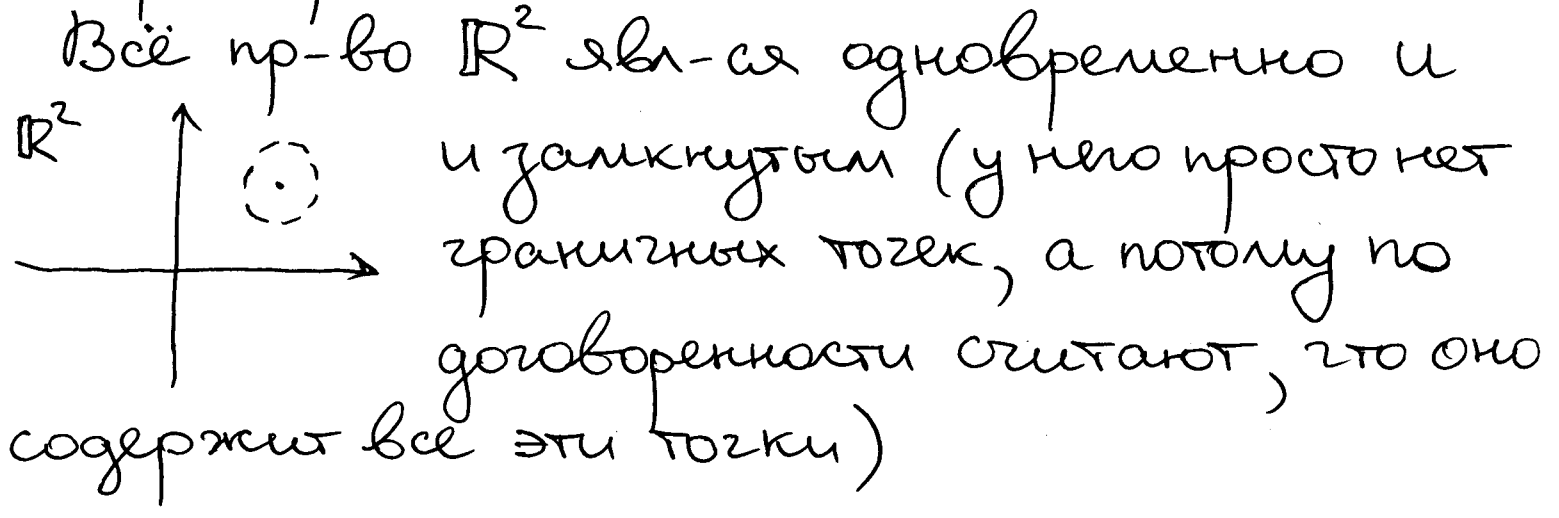 Всё пр-во ℝ² явл-ся одновременно и
ℝ²
и замкнутым (у него просто нет
граничных точек, а потому по
договоренности считают, что оно
содержит все эти точки)